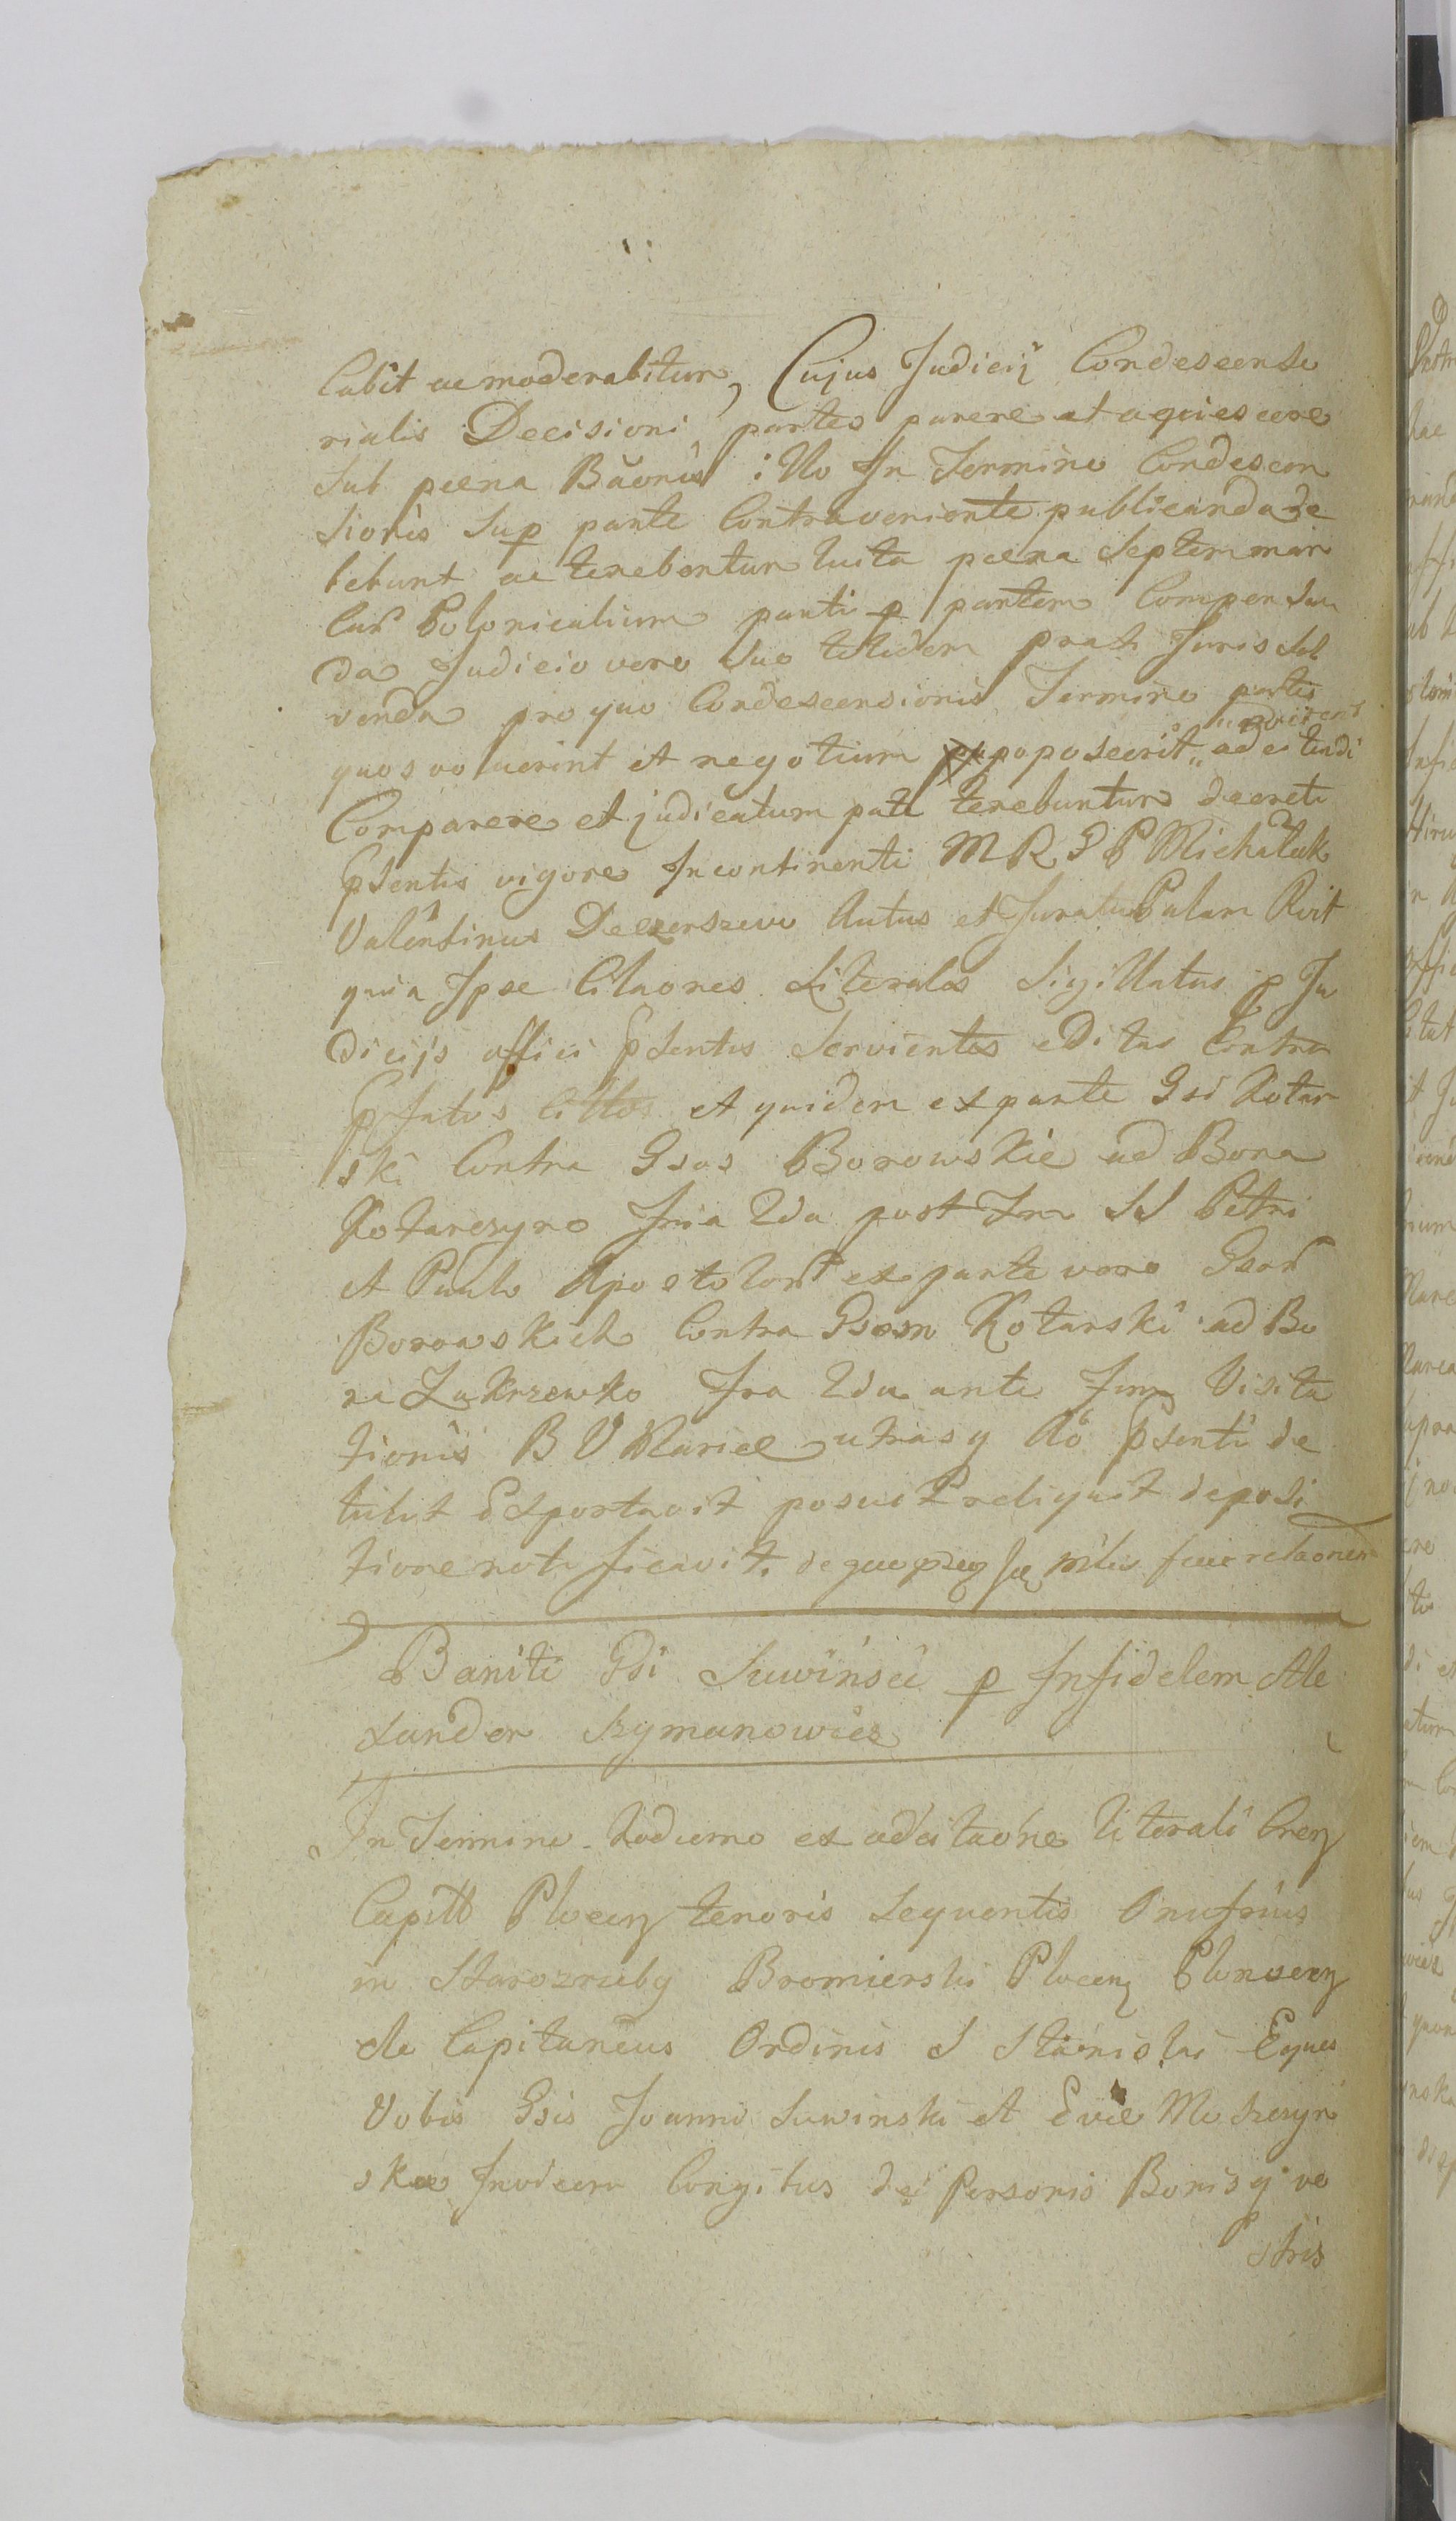 cabit ac moderabitur, Cujus Judicij Condescenso
rialis Decisioni partes parere et aquiescere
sub poena Bãonis illo In Termino Condescen
sionis sup parte Contraveniente publicanda de
bebunt ac tenebuntur luita poena Septem mar
car Polonicalium parti p partem Compensan
da Judicio vero suo totidem prati Juris sol
venda pro quo Condescensionis Termino partes
quos voluerint et negotium poposcerit
Comparere et judicatum pati tenebuntur decreti
pSentis vigore Incontinenti M R G P Michaluk
Valentinus Deczerszewo Autus et Juratus Palam Rvit
quia Ipse Citaones Literales Sigillatus p Ju
dicijs officii pSentis Servientes Editas Contra
pfatos Cittos et quidem ex parte Gsi Kotar
ski Contra Gsos Borowskie ad Bona
Kotarczyno Fria 2da post Fm SS Petri
et Pauli Apostolor ex parte vero Gsor
Borowskich Contra Gsosm Kotarski ad Bo
na Zakrzewko Fra 2da ante Fum Visita
tionis B V Mariae utrasq Ao pSenti de
tulit Exportavit posuit reliquit deposi
tione notificavit. de quo fecit relaonem
Baniti Gsi Suwinscii p Infidelem Ale
xander Szymanowicz
In Termino hodierno ex adcitaone literali
Capitt Plocen tenoris Sequentis Onufrius
in Starozruby Bromierski Plocen Plonscen
ele Capitaneus Ordinis S Stanislai Eques
Vobis Gsis Joanni Suwinski et Evae Moszczyn
skae Invicem Congibus de Personis Bonisq ve
stris